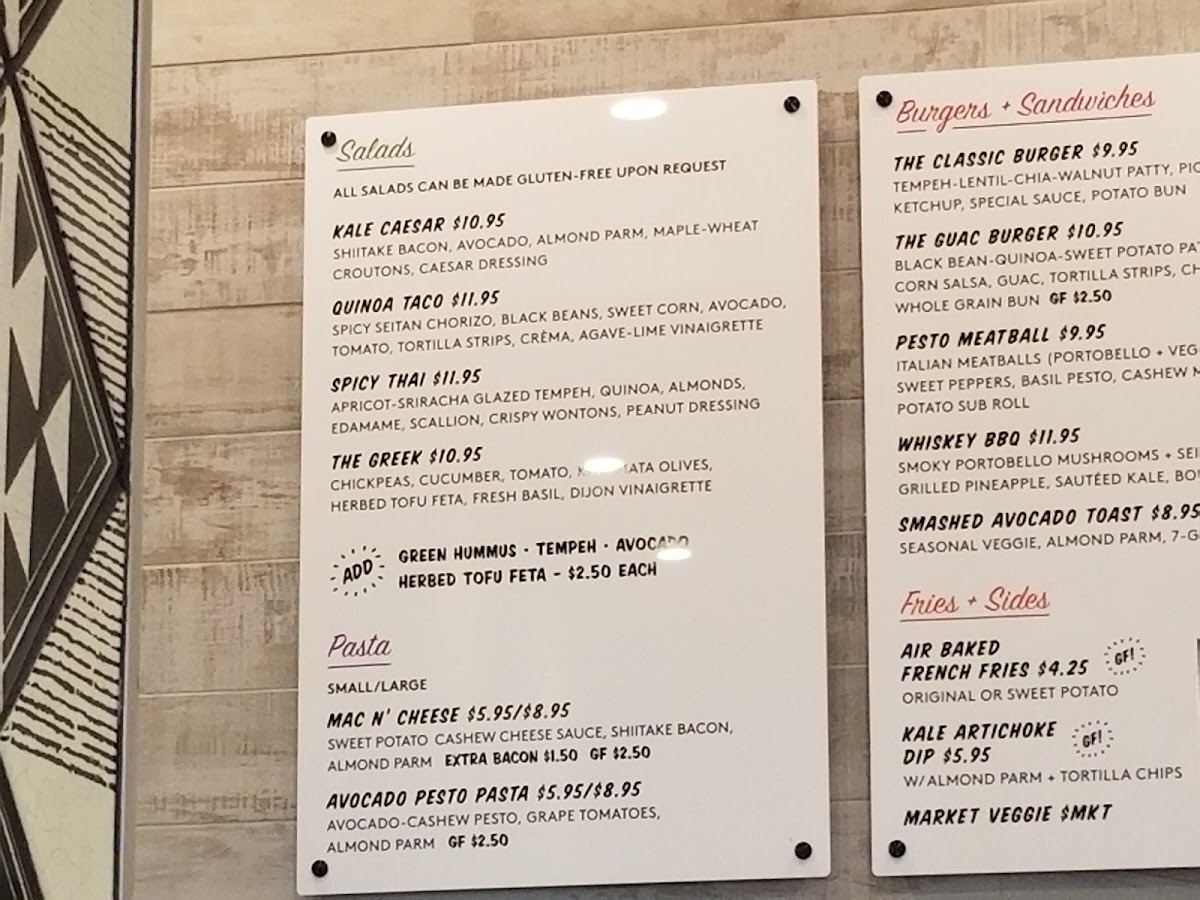 Salads
ALL SALADS CAN BE MADE GLUTEN-FREE UPON REQUEST
KALE CAESAR $10.95
SHIITAKE BACON, AVOCADO, ALMOND PARM, MAPLE-WHEAT
CROUTONS, CAESAR DRESSING
QUINOA TACO $11.95
SPICY SEITAN CHORIZO, BLACK BEANS, SWEET CORN, AVOCADO,
TOMATO, TORTILLA STRIPS, CRÈMA, AGAVE-LIME VINAIGRETTE
SPICY THAI $11.95
APRICOT-SRIRACHA GLAZED TEMPEH, QUINOA, ALMONDS,
EDAMAME, SCALLION, CRISPY WONTONS, PEANUT DRESSING
THE GREEK $10.95
CHICKPEAS, CUCUMBER, TOMATO, OLIVES,
HERBED TOFU FETA, FRESH BASIL, DIJON VINAIGRETTE
ADD
GREEN HUMMUS · TEMPEH · AVOCADO
HERBED TOFU FETA - $2.50 EACH
Pasta
SMALL/LARGE
MAC N' CHEESE $5.95/$8.95
SWEET POTATO CASHEW CHEESE SAUCE, SHIITAKE BACON,
ALMOND PARM EXTRA BACON $1.50 GF $2.50
AVOCADO PESTO PASTA $5.95/$8.95
AVOCADO-CASHEW PESTO, GRAPE TOMATOES,
ALMOND PARM GF $2.50
Burgers + Sandwiches
THE CLASSIC BURGER $9.95
TEMPEH-LENTIL-CHIA-WALNUT PATTY,
KETCHUP, SPECIAL SAUCE, POTATO BUN
THE GUAC BURGER $10.95
BLACK BEAN-QUINOA-SWEET POTATO
CORN SALSA, GUAC, TORTILLA STRIPS,
WHOLE GRAIN BUN GF $2.50
PESTO MEATBALL $9.95
ITALIAN MEATBALLS (PORTOBELLO +
SWEET PEPPERS, BASIL PESTO, CASHEW
POTATO SUB ROLL
WHISKEY BBQ $11.95
SMOKY PORTOBELLO MUSHROOMS +
GRILLED PINEAPPLE, SAUTÉED KALE,
SMASHED AVOCADO TOAST $8.95
SEASONAL VEGGIE, ALMOND PARM,
Fries + Sides
AIR BAKED
FRENCH FRIES $4.25 GF!
ORIGINAL OR SWEET POTATO
KALE ARTICHOKE
DIP $5.95 GF!
W/ ALMOND PARM + TORTILLA CHIPS
MARKET VEGGIE $MKT